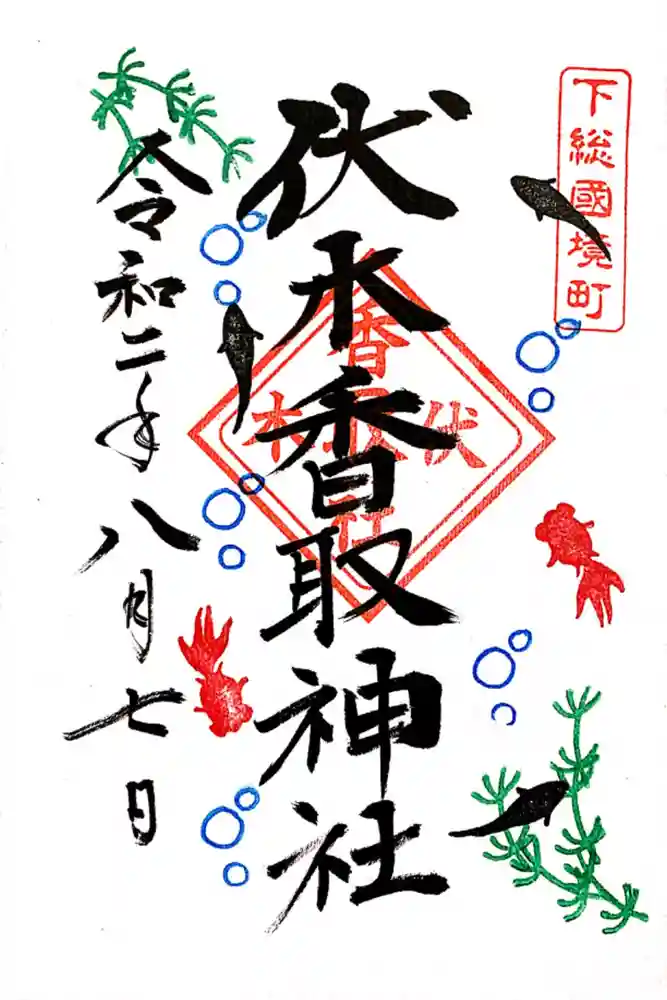 下総國境町
伏木香取神社
伏木
香取社
令和二年八月七日